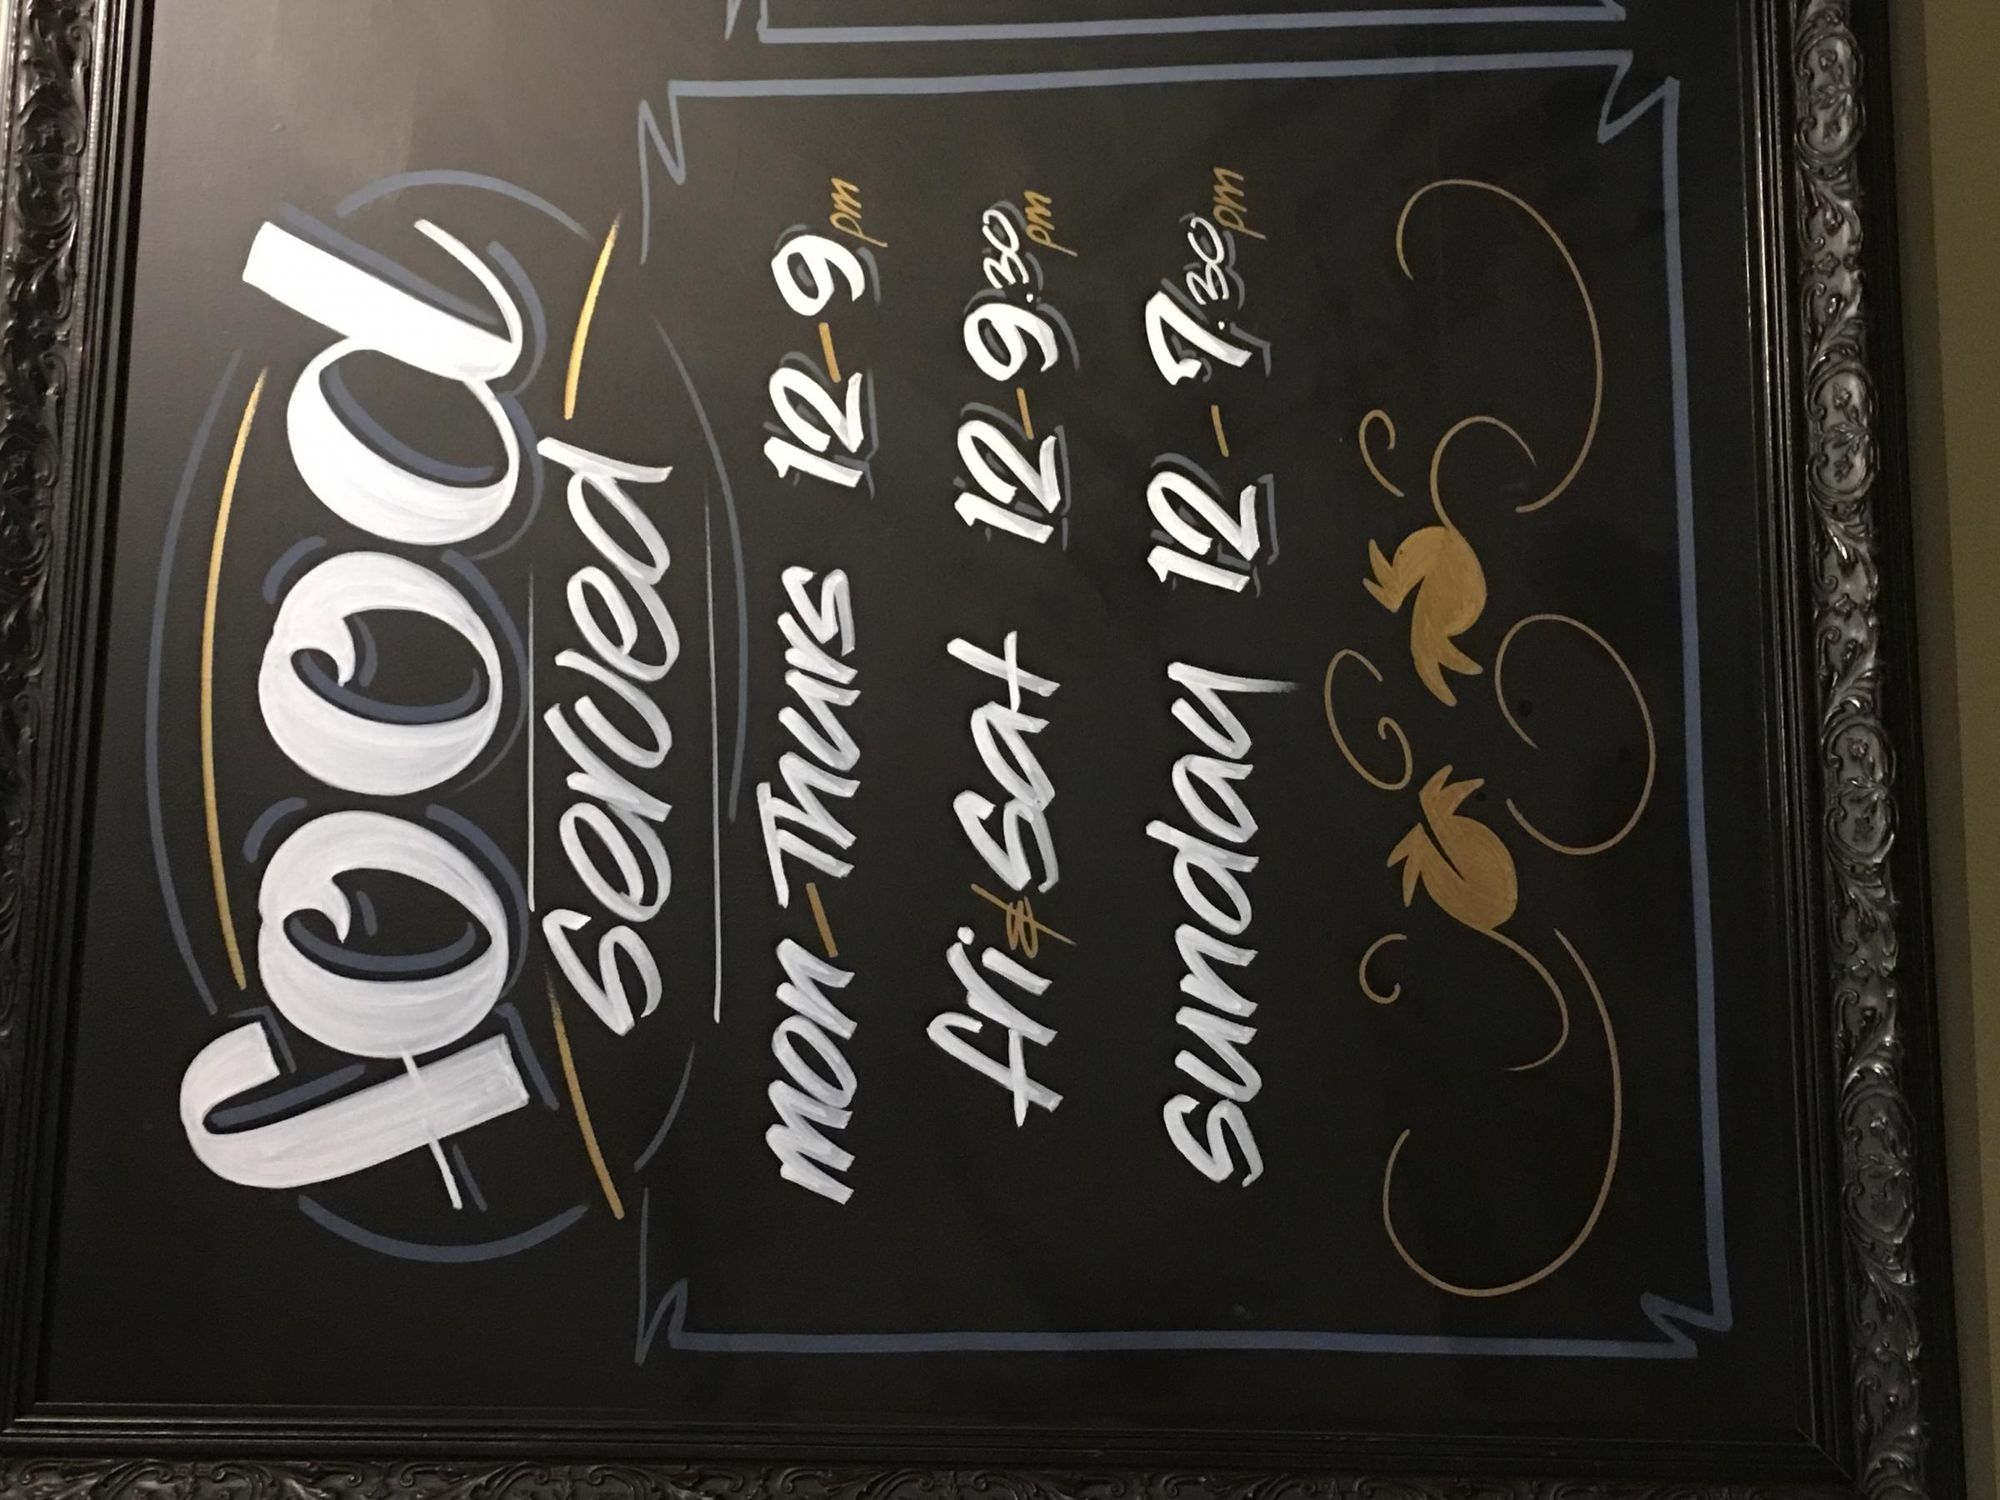 food
served
mon-Thurs 12-9pm
fri & Sat 12-9.30pm
sunday 12-7.30pm